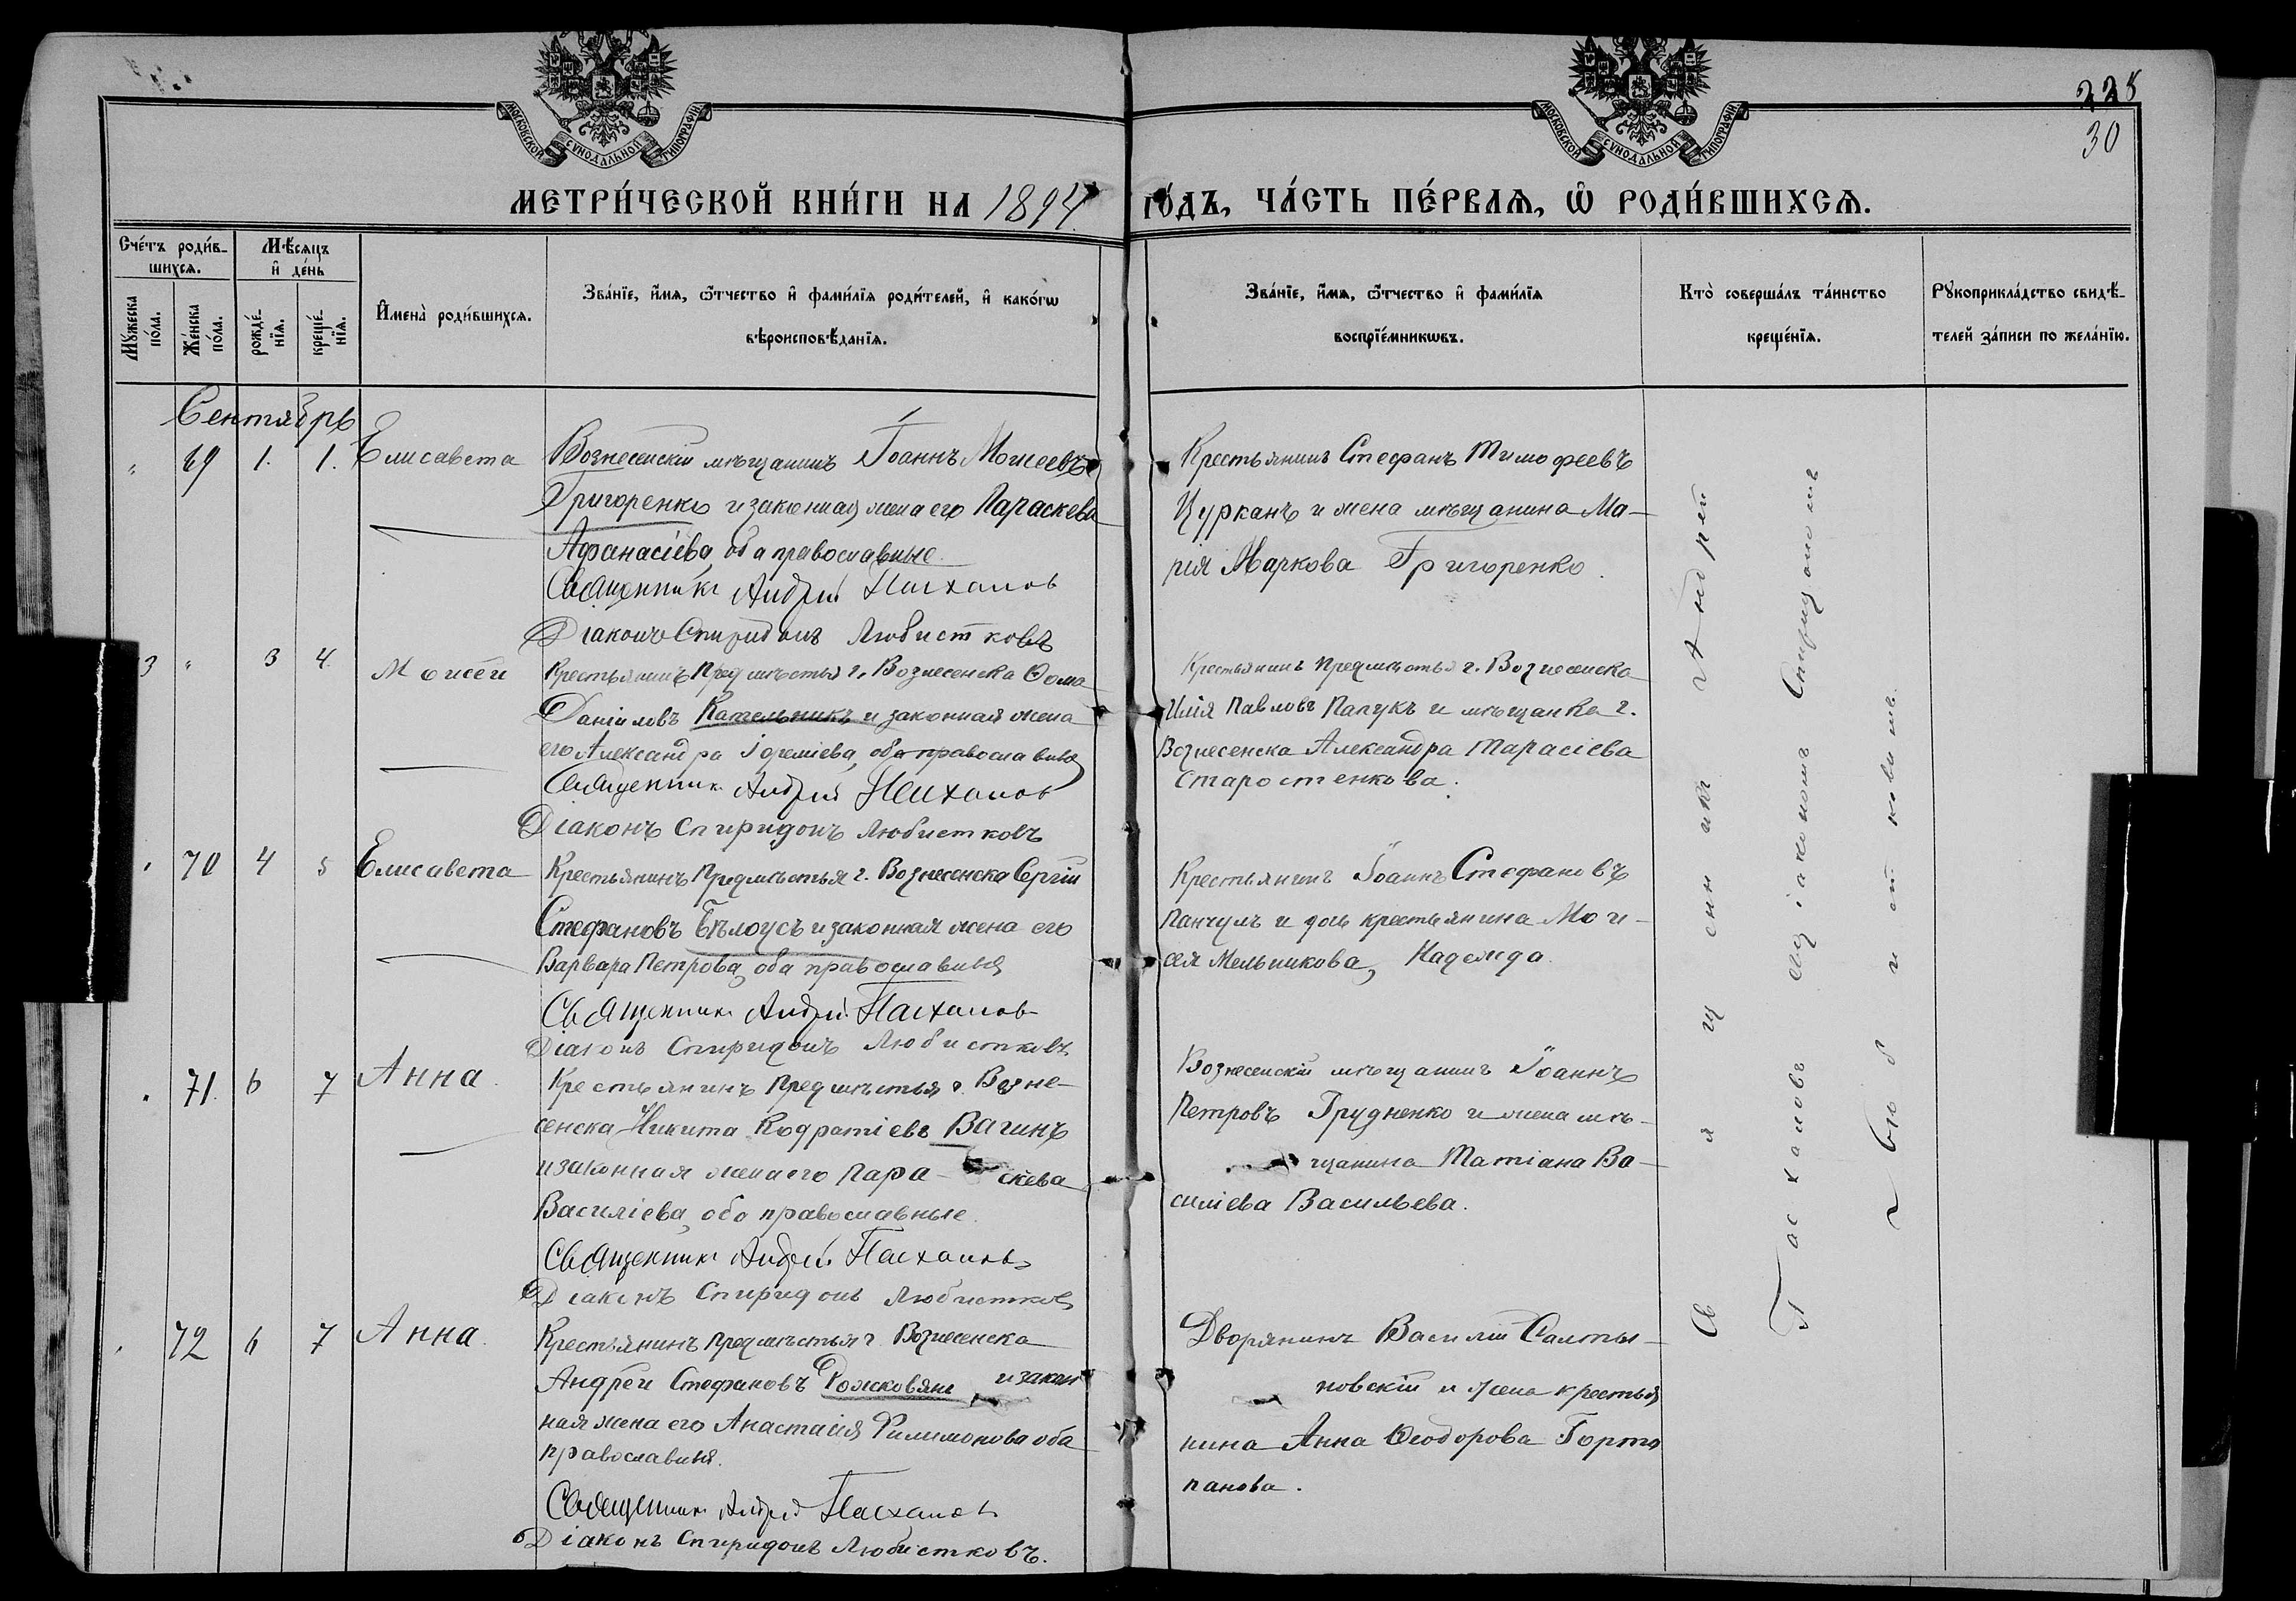 МОСКОВСКОЙ СУНОДАЛЬНОЙ ТИПОГРАФІИ
МОСКОВСКОЙ СУНОДАЛЬНОЙ ТИПОГРАФІИ
228
30
МЕТРИ́ЧЕСКОЙ КНИ́ГИ НА 1894 ГО́ДЪ, ЧА́СТЬ ПЕ́РВАѦ, Ѽ РОДИ́ВШИХСѦ.
Сче́тъ роди́в-
шихсѧ.
Мѣ́сяцъ
и҆ де́нь
Мꙋ́жеска
по́ла.
Же́нска
по́ла.
рожде́-
нїѧ.
креще́-
нїѧ.
И҆мена̀ роди́вшихсѧ.
Зва́нїе, и҆́мѧ, ѻ҆́тчество и҆ фами́лїѧ роди́телей, и҆ како́гѡ
вѣроисповѣ́данїѧ.
Зва́нїе, и҆́мѧ, ѻ҆́тчество и҆ фами́лїѧ
воспрїе́мникѡвъ.
Кто̀ соверша́лъ та́инство
креще́нїѧ.
Рꙋкоприкла́дство свидѣ́-
телей за́писи по жела́нїю.
Сентябрь
" 69 1. 1. Елисавета
Вознесенскій мѣщанинъ Іоаннъ Моисеевъ
Григоренко и законная жена его Параскева
Афанасіева, оба православные.
Священникъ Андрей Пасхаловъ
Діаконъ Спиридонъ Любистковъ
Крестьянинъ Стефанъ Тимофеевъ
Цурканъ и жена мѣщанина Ма-
рія Маркова Григоренко.
3 " 3 4. Моисей
Крестьянинъ Предмѣстья г. Вознесенска Ѳома
Даніиловъ Кательникъ и законная жена
его Александра Іереміева, оба православные
Священникъ Андрей Пасхаловъ
Діаконъ Спиридонъ Любистковъ
Крестьянинъ Предмѣстья г. Вознесенска
Илія Павловъ Папукъ и мѣщанка г.
Вознесенска Александра Тарасіева
Старостенкова.
" 70 4 5 Елисавета
Крестьянинъ Предмѣстья г. Вознесенска Сергій
Стефановъ Бѣлоусъ и законная жена его
Варвара Петрова, оба православные
Священникъ Андрей Пасхаловъ
Діаконъ Спиридонъ Любистковъ
Крестьянинъ Іоаннъ Стефановъ
Панчулъ и дочь крестьянина Мои-
сея Мельникова, Надежда.
" 71. 6 7 Анна.
Крестьянинъ Предмѣстья г. Возне-
сенска Никита Кодратіевъ Вагинъ
и законная жена его Пара- скева
Василіева, оба православные.
Священникъ Андрей Пасхаловъ
Діаконъ Спиридонъ Любистковъ
Вознесенскій мѣщанинъ Іоаннъ
Петровъ Грудненко и жена мѣ-
щанина Татіана Ва-
силіева Васильева.
" 72 6 7 Анна.
Крестьянинъ Предмѣстья г. Вознесенска
Андрей Стефановъ Рожковянъ и закон
ная жена его Анастасія Филимонова оба
православныя.
Священникъ Андрей Пасхаловъ
Діаконъ Спиридонъ Любистковъ.
Дворянинъ Василій Салты-
новскій и жена крестья
нина Анна Ѳеодорова Горто
панова.
Священникъ Андрей
Пасхаловъ съ діакономъ Спиридономъ
Любистковымъ.